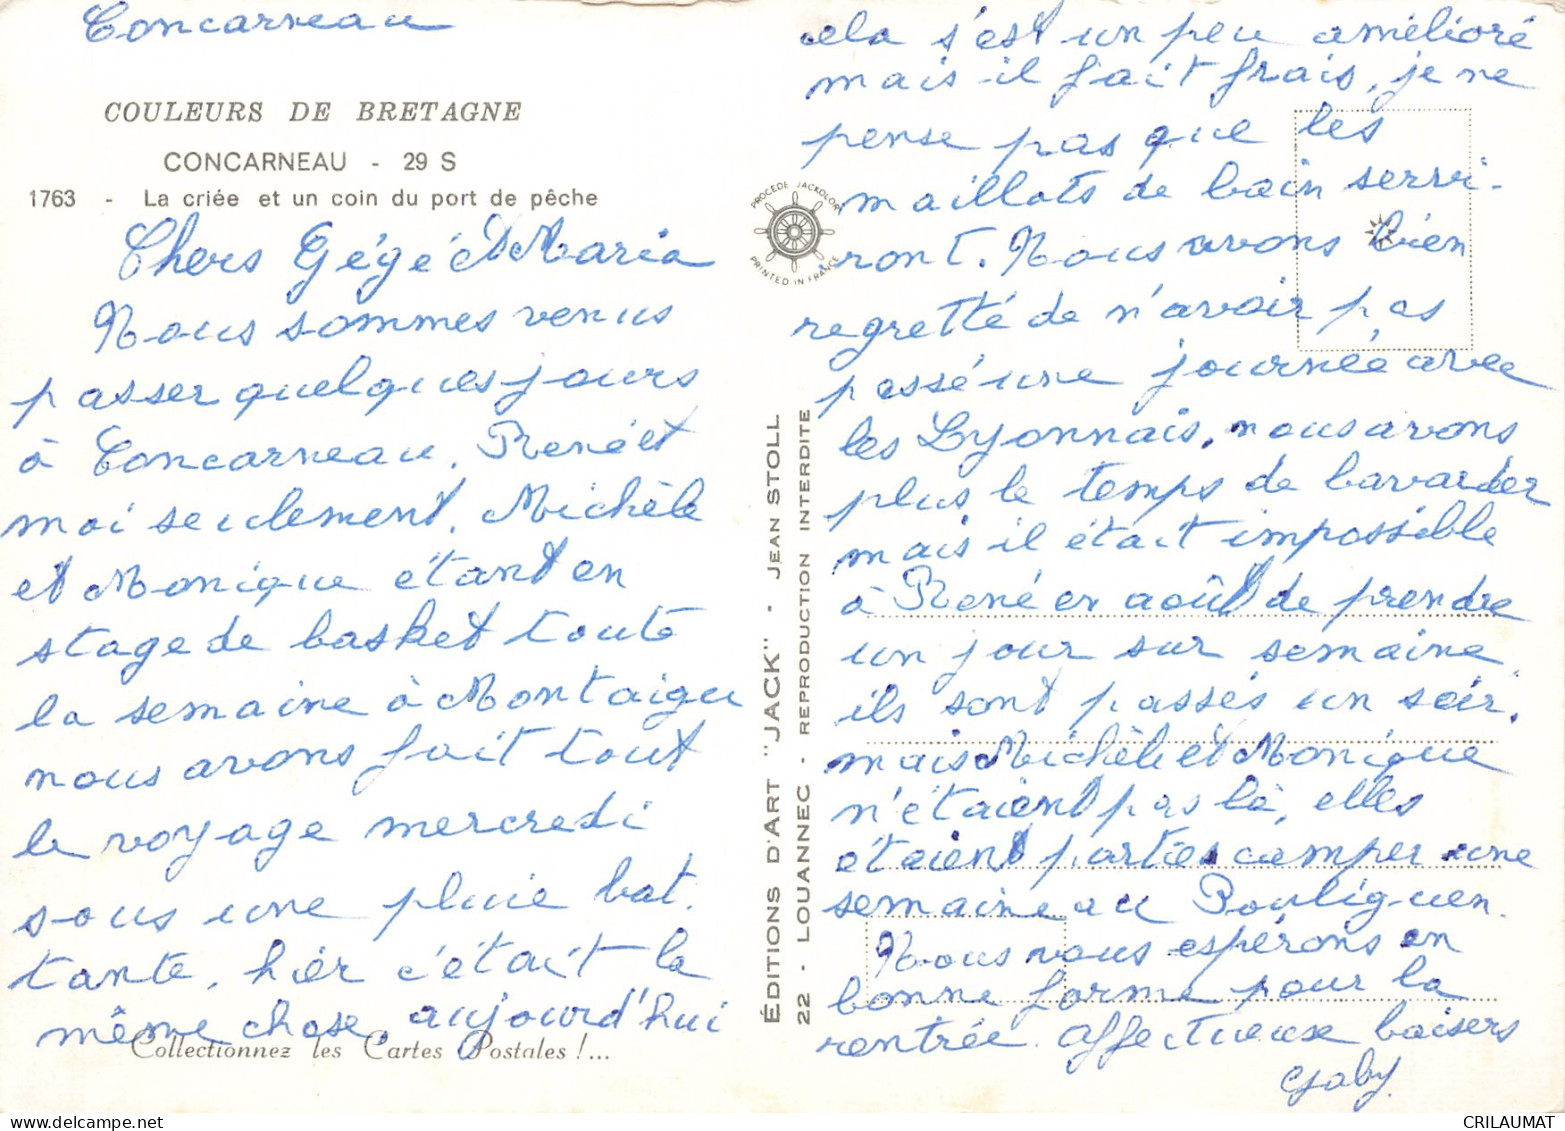 Concarneau
COULEURS DE BRETAGNE
CONCARNEAU - 29 S
1763 - La criée et un coin du port de pêche
Chers Gégé et Maria
Nous sommes venus
passer quelques jours
à Concarneau, René et
moi seulement, Michèle
et Monique étant en
stage de basket toute
la semaine à Montaigu
nous avons fait tout
le voyage mercredi
sous une pluie bat.
tante, hier c'était la
même chose, aujourd'hui
Collectionnez les Cartes Postales !...
PROCÉDÉ JACKOLOR
PRINTED IN FRANCE
ÉDITIONS D'ART "JACK" - JEAN STOLL
22 - LOUANNEC - REPRODUCTION INTERDITE
cela s'est un peu amélioré
mais il fait frais, je ne
pense pas que les
maillots de bain servi-
ront. Nous avons bien
regretté de n'avoir pas
passé une journée avec
les Lyonnais, nous avons
plus le temps de bavarder
mais il était impossible
à René en août de prendre
un jour sur semaine,
ils sont passés un soir,
mais Michèle et Monique
n'étaient pas là, elles
étaient parties camper une
semaine au Pouliguen.
Nous vous espérons en
bonne forme pour la
rentrée. affectueux baisers
Gaby
CRILAUMAT